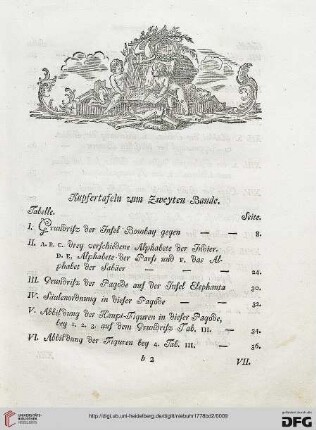 Kupfertafeln zum Zweyten Bande.
Tabelle. Seite.
I. Grundriß der Insel Bombay gegen — — 8.
II. A. B. C. drey verschiedene Alphabete der Indier.
D. E. Alphabete der Parsi und F. das Al-
phabet der Sabäer — — — 24.
III Grundriß der Pagode auf der Insel Elephanta 30.
IV. Säulenordnung in dieser Pagode — — 32.
V. Abbildung der Haupt-Figuren in dieser Pagode,
bey 1. 2. 3. auf dem Grundriß Tab. III. — 34.
VI. Abbildung der Figuren bey 4. Tab. III. — 36.
b 2 VII.
http://digi.ub.uni-heidelberg.de/diglit/niebuhr1778bd2/0009
UNIVERSITÄTS-
BIBLIOTHEK
HEIDELBERG
gefördert durch die
DFG